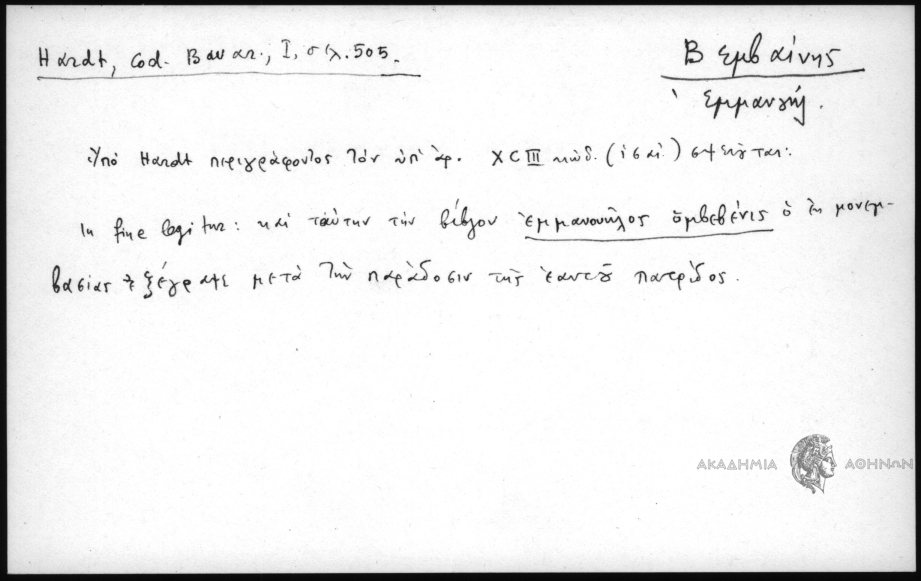 Hardt, Cod. Bavar., I, σελ. 505.
Βεμβαίνης
Ἐμμανουήλ.
Ὑπό Hardt περιγράφοντος τόν ὑπ' ἀρ. XCIII κώδ. ( ) σημειοῦται:
In fine legitur: καί ταύτην τήν βίβλον ἐμμανουῆλος ὁμβεβένις ὁ ἐκ μονεμ-
βασίας ἐξέγραψε μετὰ τὴν παράδοσιν τῆς ἑαυτοῦ πατρίδος.
ΑΚΑΔΗΜΙΑ ΑΘΗΝΩΝ